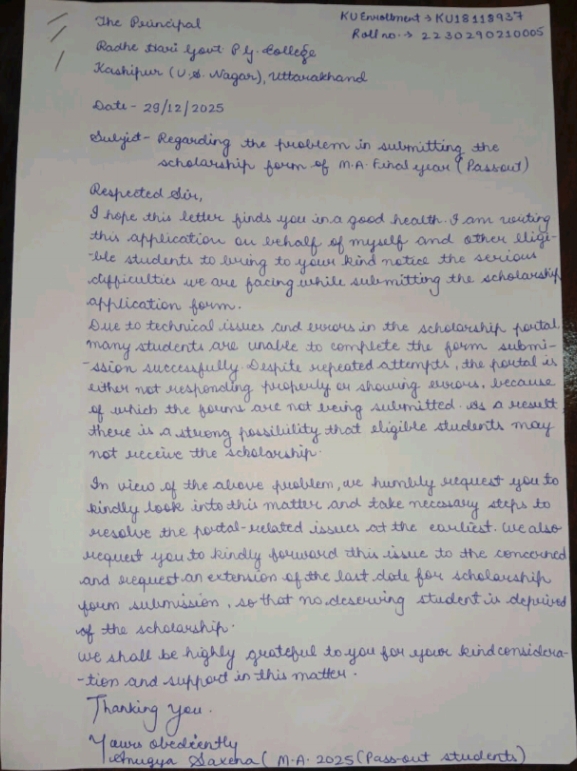 The Principal
KU Enrollment → KU18118937
Roll no. → 2230290210005
Radhe Hari Govt P.G. College
Kashipur (U.S. Nagar), Uttarakhand
Date - 29/12/2025
Subject - Regarding the problem in submitting the
scholarship form of M.A. Final year (Passout)
Respected Sir,
I hope this letter finds you in a good health. I am writing
this application on behalf of myself and other eligi-
-ble students to bring to your kind notice the serious
difficulties we are facing while submitting the scholarship
application form.
Due to technical issues and errors in the scholarship portal
many students are unable to complete the form submi-
-ssion successfully. Despite repeated attempts, the portal is
either not responding properly or showing errors, because
of which the forms are not being submitted. As a result
there is a strong possibility that eligible students may
not receive the scholarship.
In view of the above problem, we humbly request you to
kindly look into this matter and take necessary steps to
resolve the portal-related issues at the earliest. We also
request you to kindly forward this issue to the concerned
and request an extension of the last date for scholarship
form submission, so that no deserving student is deprived
of the scholarship.
We shall be highly grateful to you for your kind considera-
-tion and support in this matter.
Thanking You.
Yours obediently
Anugya Saxena (M.A. 2025 (Pass-out students)